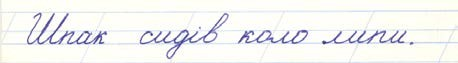 Шпак сидів коло липи.